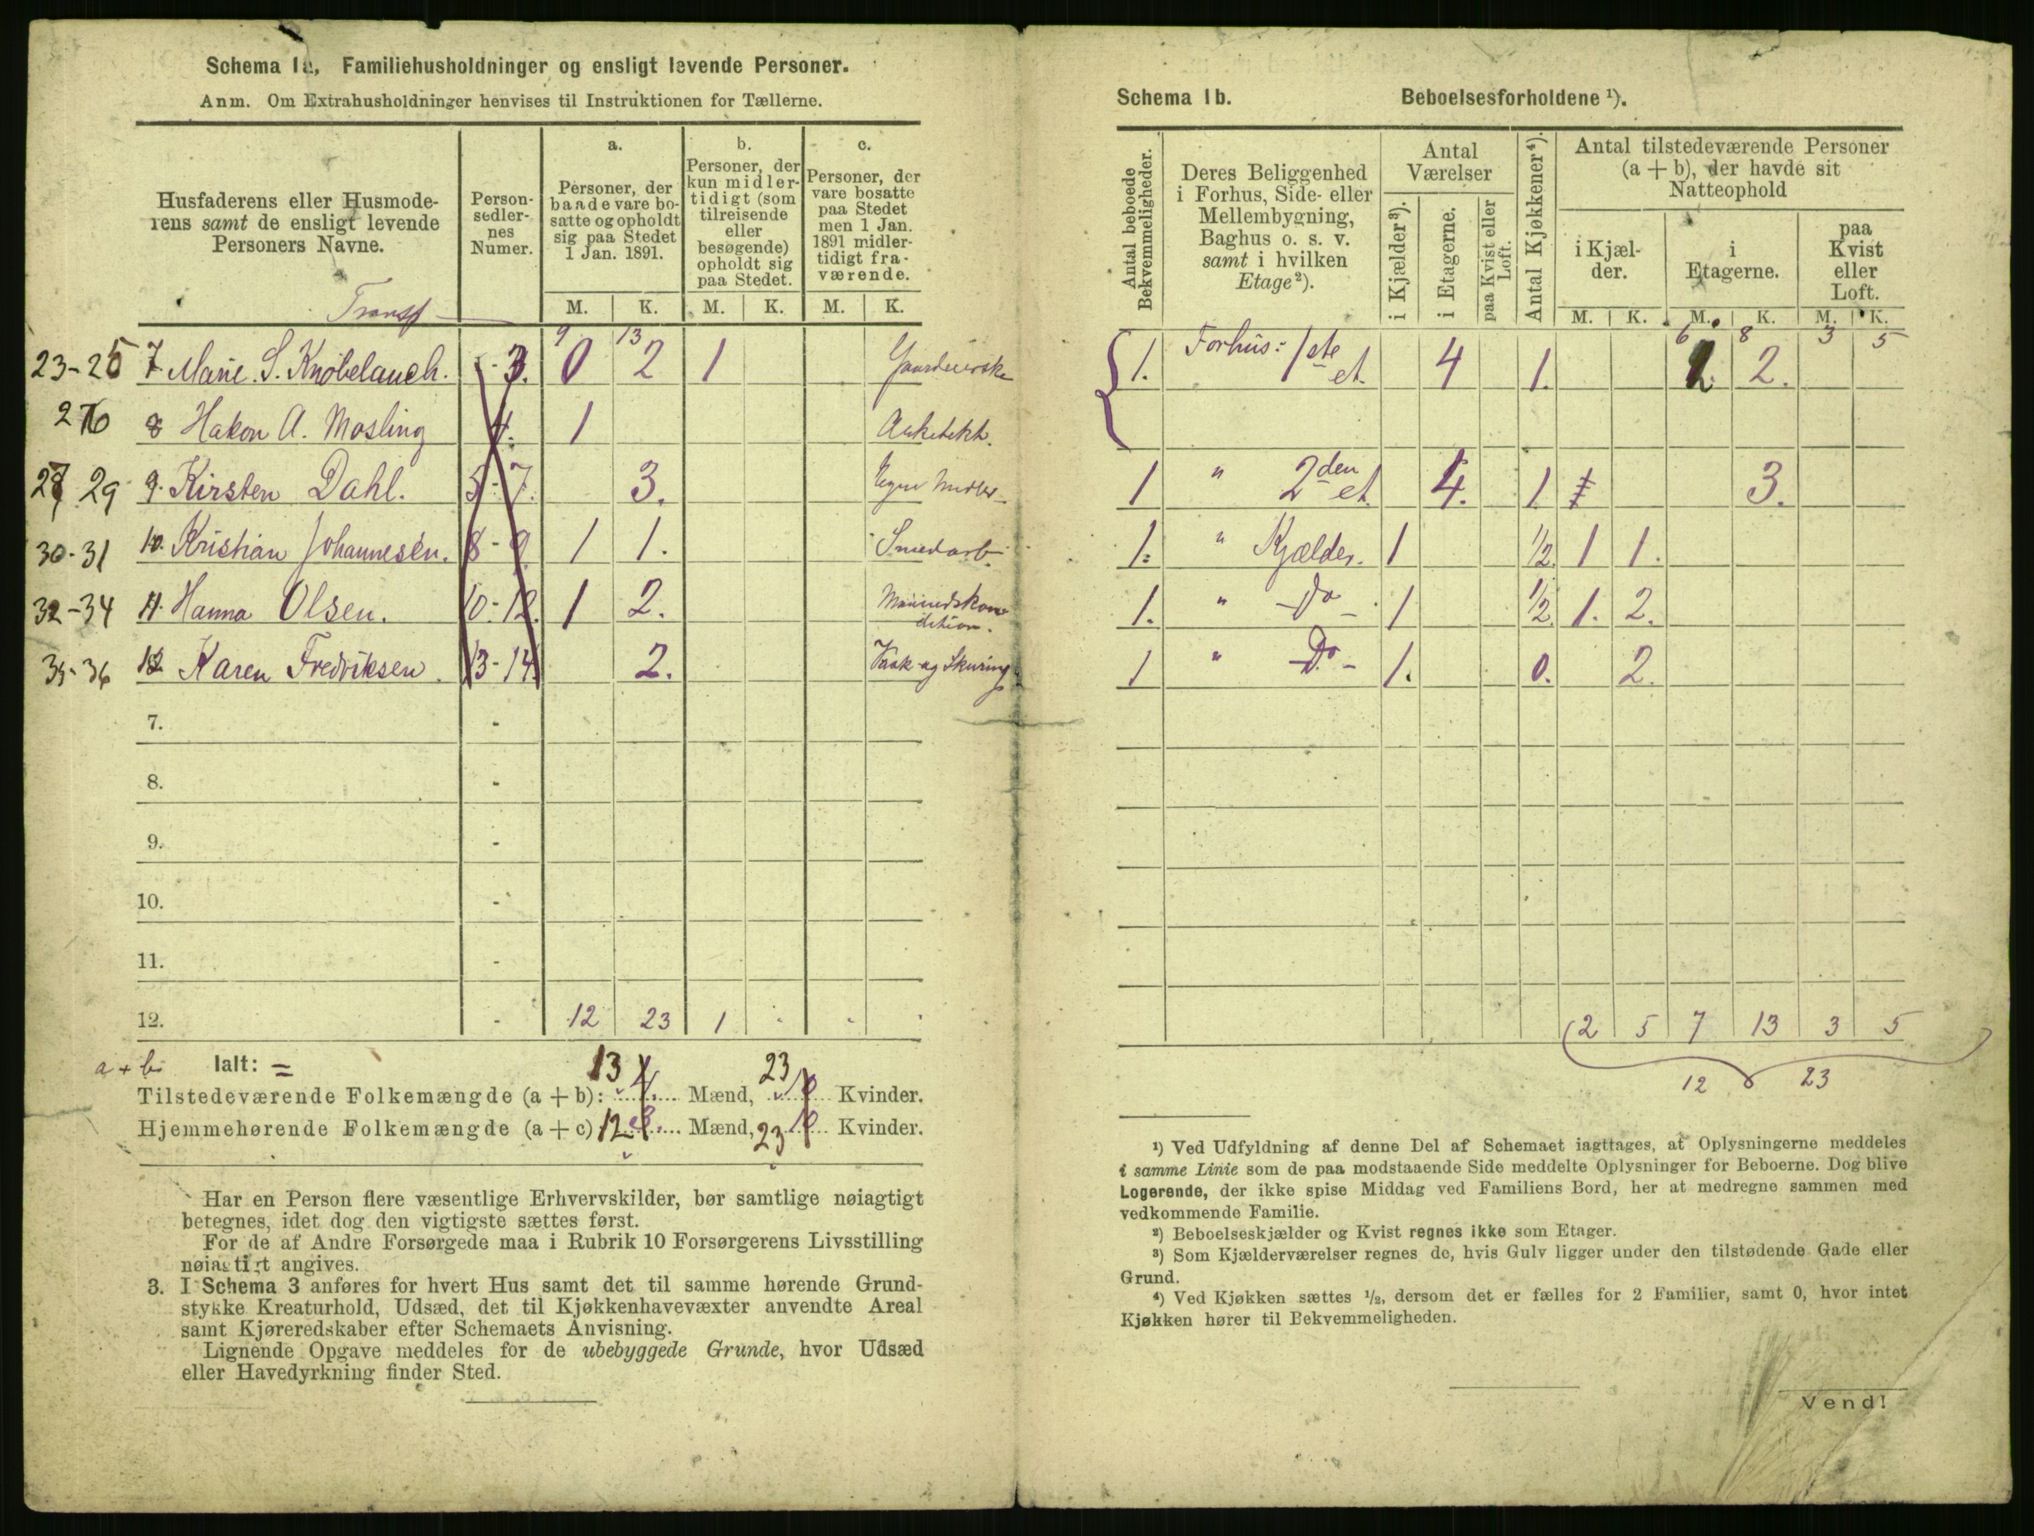 Schema 1a. Familiehusholdninger og ensligt levende Personer.
Anm. Om Extrahusholdninger henvises til Instruktionen for Tællerne.
Husfaderens eller Husmode-
rens samt de ensligt levende
Personers Navne.
Person-
sedler-
nes
Numer.
a.
Personer, der
baade vare bo-
satte og opholdt
sig paa Stedet
1 Jan. 1891.
b.
Personer, der
kun midler-
tidigt (som
tilreisende
eller
besøgende)
opholdt sig
paa Stedet.
c.
Personer, der
vare bosatte
paa Stedet
men 1 Jan.
1891 midler-
tidigt fra-
værende.
M. K. M. K. M. K.
Transp 9 13
23-25 7 Marie. S. Knobelauch. 3. 0 2 1
8 Hakon A. Mosling 4. 1 Arkitekt.
29 9. Kirsten Dahl. 5-7. 3. Egne Midler
30-31 10. Kristian Johannesen. 8-9 1 1. Smedarb.
32-34 11. Hanna Olsen. 10-12. 1 2. Maanedskon
dition.
35-36 12 Karen Fredriksen. 13-14. 2. Vask og Skuring
7. -
8. -
9. -
10. -
11. -
12. - 12 23 1 . . .
a + b Ialt: =
Tilstedeværende Folkemængde (a + b): 13 Mænd, 23 Kvinder.
Hjemmehørende Folkemængde (a + c) 12 Mænd, 23 Kvinder.
Har en Person flere væsentlige Erhvervskilder, bør samtlige nøiagtigt
betegnes, idet dog den vigtigste sættes først.
For de af Andre Forsørgede maa i Rubrik 10 Forsørgerens Livsstilling
nøiagtigt angives.
3. I Schema 3 anføres for hvert Hus samt det til samme hørende Grund-
stykke Kreaturhold, Udsæd, det til Kjøkkenhavevæxter anvendte Areal
samt Kjøreredskaber efter Schemaets Anvisning.
Lignende Opgave meddeles for de ubebyggede Grunde, hvor Udsæd
eller Havedyrkning finder Sted.
Schema 1b. Beboelsesforholdene ¹).
Antal beboede
Bekvemmeligheder.
Deres Beliggenhed
i Forhus, Side- eller
Mellembygning,
Baghus o. s. v.
samt i hvilken
Etage ²).
Antal
Værelser
i Kjælder ³).
i Etagerne.
paa Kvist eller
Loft.
Antal Kjøkkener ⁴).
Antal tilstedeværende Personer
(a + b), der havde sit
Natteophold
i Kjæl-
der.
i
Etagerne.
paa
Kvist
eller
Loft.
M. K. M. K. M. K.
6 8 3 5
1. Forhus: 1ste et. 4 1. 2.
1 " 2den et. 4. 1. 3.
1. " Kjælder. 1 1/2 1 1.
1. " Do 1 1/2 1. 2.
1 " Do 1. 0. 2.
2 5 7 13 3 5
12 23
¹) Ved Udfyldning af denne Del af Schemaet iagttages, at Oplysningerne meddeles
i samme Linie som de paa modstaaende Side meddelte Oplysninger for Beboerne. Dog blive
Logerende, der ikke spise Middag ved Familiens Bord, her at medregne sammen med
vedkommende Familie.
²) Beboelseskjælder og Kvist regnes ikke som Etager.
³) Som Kjælderværelser regnes de, hvis Gulv ligger under den tilstødende Gade eller
Grund.
⁴) Ved Kjøkken sættes ½, dersom det er fælles for 2 Familier, samt 0, hvor intet
Kjøkken hører til Bekvemmeligheden.
Vend!